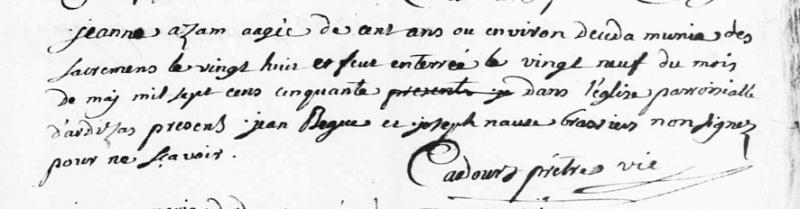 jeanne azam aagée de cent ans ou environ deceda munie des
sacremens le vingt huit et feut enterrée le vingt neuf du mois
de maj mil sept cens cinquante dans l'église parroissialle
d'ardizas presens jean Begué et joseph nause brassiers non signez
pour ne sçavoir.
Cadours prêtre vic